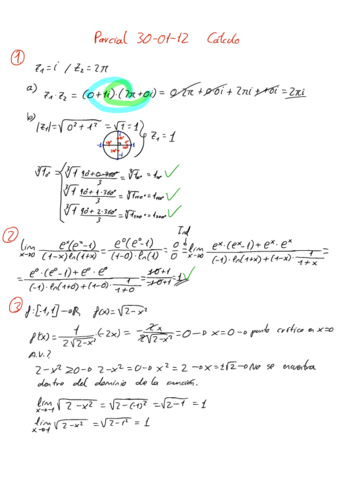 Parcial 30-01-12 Calculo
① z₁ = i / z₂ = 2π
a) z₁·z₂ = (0+1i)·(2π+0i) = 0·2π + 0·0i + 2πi + 0i = 2πi
b) |z₁| = √(0²+1²) = √1 = 1 } z₁ = 1
³√1 = { ³√1 (90+0·360)/3 = ³√1 = 1 ✓
³√1 (90+1·360)/3 = ³√1 = 1 ✓
³√1 (90+2·360)/3 = ³√1 = 1 ✓
Ind
② lim x→0 eˣ(eˣ-1)/((1-x)·ln(1+x)) = e⁰(e⁰-1)/((1-0)·ln(1)) = 0/0 = lim x→0 (eˣ·(eˣ-1)+eˣ·eˣ)/((-1)·ln(1+x)+(1-x)·1/(1+x)) =
= (e⁰·(e⁰-1)+e⁰·e⁰)/((-1)·ln(1+0)+(1-0)·1/(1+0)) = (0+1)/(0+1) = 1 ✓
③ f: [-1,1] → R f(x) = √(2-x²)
f'(x) = 1/(2√(2-x²))·(-2x) = -2x/(2√(2-x²)) = 0 → x = 0 → punto critico en x=0
A.V.?
2-x² ≥ 0 → 2-x² = 0 → x² = 2 → x = ±√2 → No se encuentra
dentro del dominio de la funcion.
lim x→-1 √(2-x²) = √(2-(-1)²) = √(2-1) = 1
lim x→1 √(2-x²) = √(2-1²) = 1